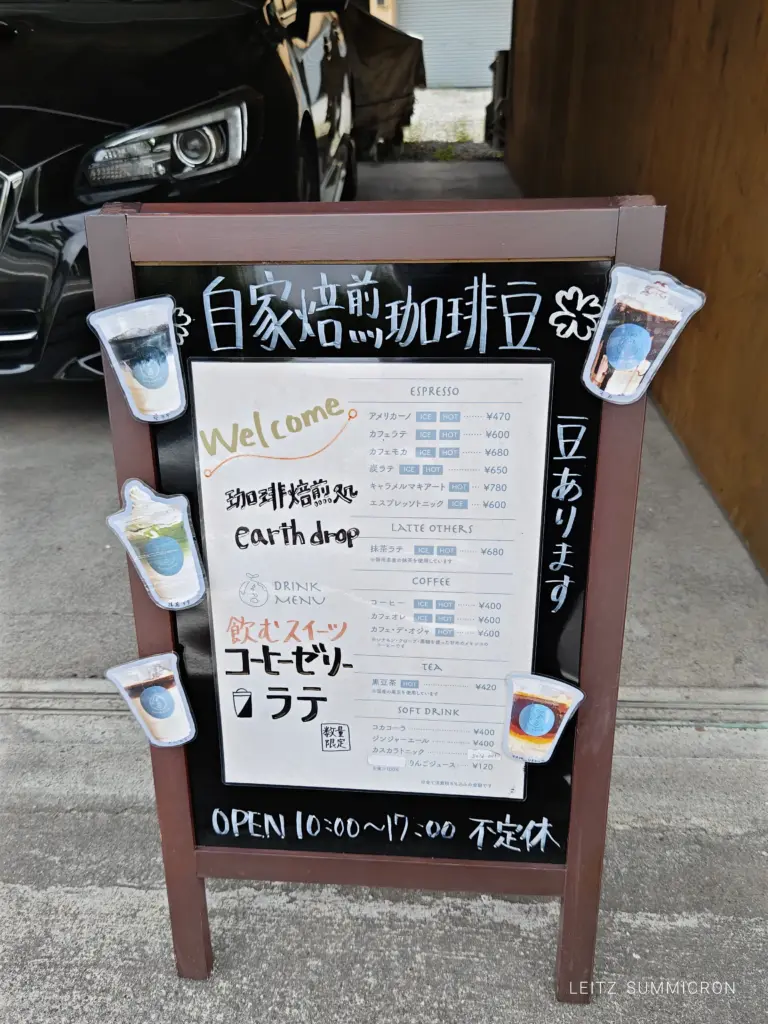 自家焙煎珈琲豆
豆あります
Welcome
珈琲焙煎処
earth drop
DRINK
MENU
飲むスイーツ
コーヒーゼリー
ラテ
数量
限定
ESPRESSO
アメリカーノ ICE HOT ¥470
カフェラテ ICE HOT ¥600
カフェモカ ICE HOT ¥680
炭ラテ ICE HOT ¥650
キャラメルマキアート HOT ¥780
エスプレッソトニック ICE ¥600
LATTE OTHERS
抹茶ラテ ICE HOT ¥680
COFFEE
コーヒー ICE HOT ¥400
カフェオレ ICE HOT ¥600
カフェ・デ・オジャ ICE HOT ¥600
TEA
黒豆茶 HOT ¥420
SOFT DRINK
コカコーラ ¥400
ジンジャーエール ¥400
カスカラトニック
りんごジュース ¥120
OPEN 10:00〜17:00 不定休
LEITZ SUMMICRON